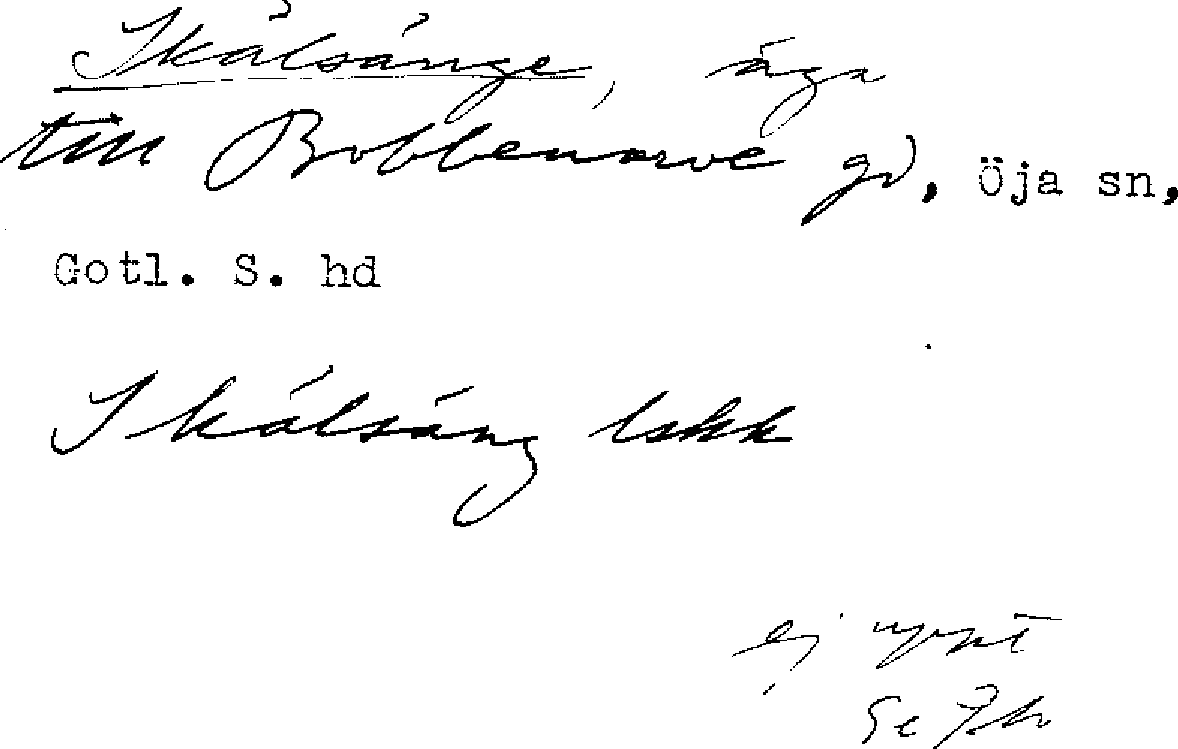 Skålsänge, äga
till Bobbenarve gd, Öja sn,
Gotl. S. hd
Skålsäng lskk
ej uppt